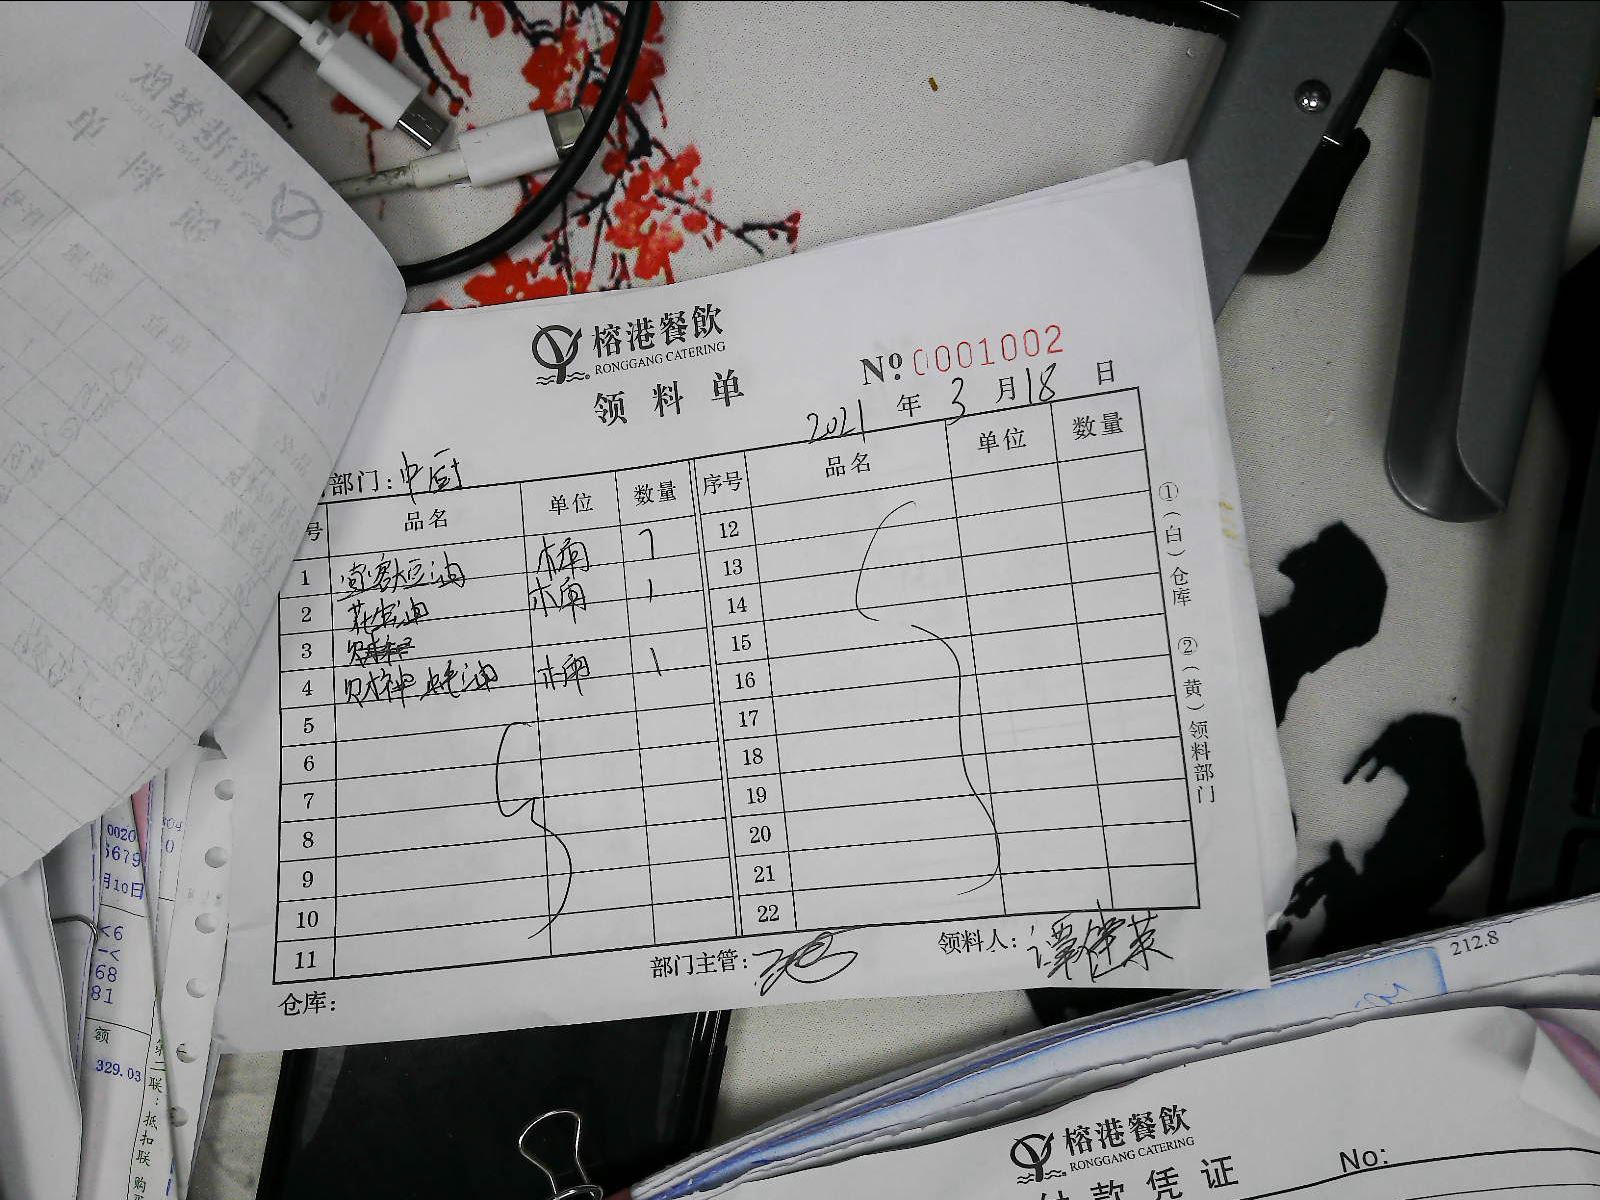 榕港餐飲
RONGGANG CATERING
领料单
№ 0001002
2021年3月18日
部门:中厨
号 品名 单位 数量 序号 品名 单位 数量
1 大豆油 桶 7
2 花生油 桶 1
3
4 财神蚝油 桶 1
5
6
7
8
9
10
11
12
13
14
15
16
17
18
19
20
21
22
①(白)仓库 ②(黄)领料部门
仓库:
部门主管:
领料人:谭
0020
5679
月10日
<6
-<
68
81
额
329.03
第二联:抵扣联 购
212.8
榕港餐飲
RONGGANG CATERING
付款凭证
No: